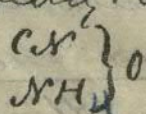 CN'
NH₄ } O